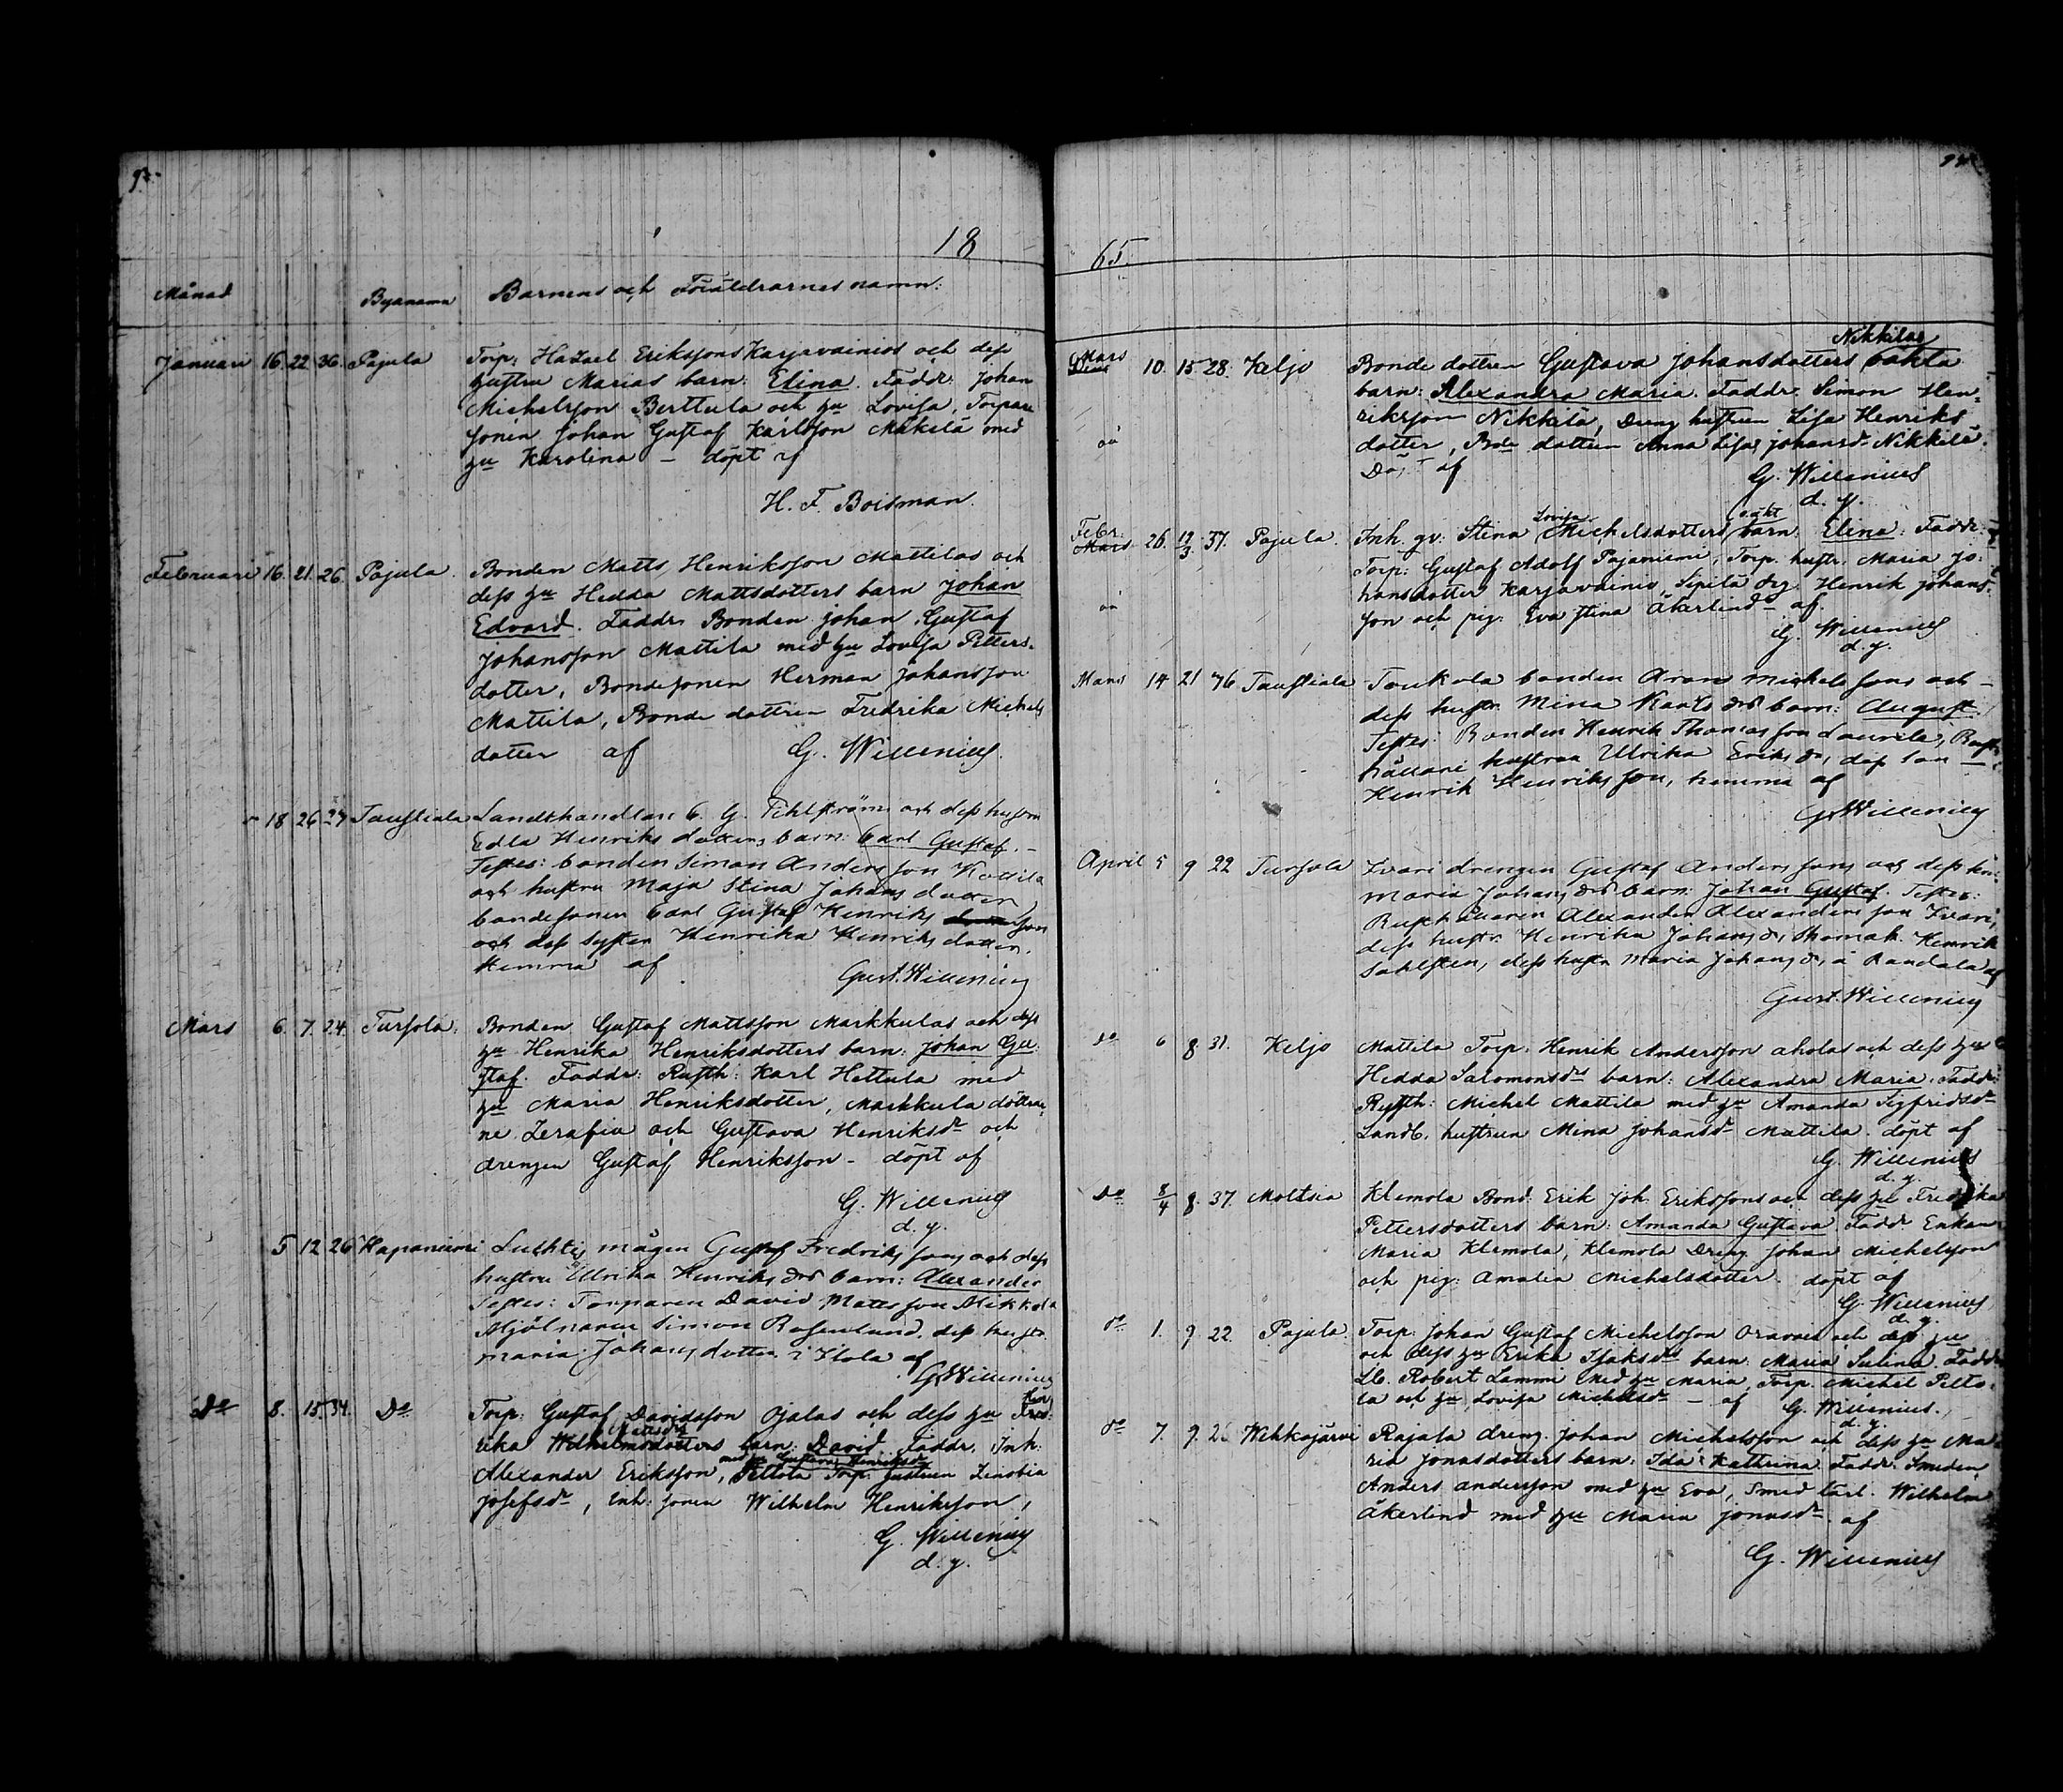 18
Månad Byanamn Barnens och Föräldrarnes namn.
Januari 16. 22. 36. Pajula Torp. Hasael Erikssons Karjavainios och dess
hustru Marias barn: Elina. Faddr. Johan
Michelsson Berttula och hu Lovisa, Torpare
sonen Johan Gustaf Karlsson Mäkelä med
hu Karolina – döpt af
H. F. Boisman.
Februari 16. 21. 26. Pajula. Bonden Matts Henriksson Mattilas och
dess hu Hedda Mattsdotters barn Johan
Edvard. Faddr. Bonden Johan Gustaf
Johansson Mattila med hu Lovisa Petters-
dotter, Bondesonen Herman Johansson
Mattila, Bonde dottren Fredrika Michels
dotter af G. Willenius.
18 26 27 Taustiala Landthandlare C. G. Fihlströms och dess hustru
Edla Henriks dotters barn: Carl Gustaf. –
Testes: bonden Simon Andersson Kottila
och hustru Maja Stina Johans dotter
bondesonen Carl Gustaf Henriks son
och dess syster Henrika Henriks dotter,
hemma af Gust. Willenius
Mars 6. 7. 24. Tursola. Bonden Gustaf Mattsson Markkulas och dess
hu Henrika Henriksdotters barn: Johan Gu
staf. Faddr: Rusth: Karl Hettula med
hu Maria Henriksdotter, Markkula döttrar
ne Serafia och Gustava Henriksdr och
drengen Gustaf Henriksson – döpt af
G. Willenius
d. y.
5 12 26 Hapaniemi mågen Gustaf Fredriks sons och dess
hustru Ulrika Henriks drs barn: Alexander
Testes: Torparen David Matts son Mikkola
Mjölnaren Simon Rosenlund, dess hustr.
Maria Johans dotter i Itola af
G. Willenius
Do 8. 15. 34. Do Torp: Gustaf Davidsson Ojalas och dess hu Hen
rika Wilhelmsdotters barn: David. Faddr. Inh:
med hu Gustava Henriksdr
Alexander Eriksson, Peltola Torp. hustrun Zenobia
Josefsdr, Inh: sonen Wilhelm Henriksson,
G. Willenius
d. y.
65.
Nikkilas
Mars 10. 15. 28. Keljo Bonde dottren Gustava Johansdotters oäkta
barn: Alexandra Maria. Faddr. Simon Hen-
riksson Nikkilä, Dreng hustrun Lisa Henriks
oä dotter, Bde dottren Anna Lisa Johansdr Nikkilä.
Döpt af
G. Willenius
d. y.
Lovisa oäkt
Febr. 26. 19/3. 37. Pajula. Inh. qv: Stina Michelsdotters barn: Elina. Faddr.
Torp: Gustaf Adolf Pajuniemi, Torp. hustr. Maria Jo-
hansdotter Karjavainio, Sipilä drg. Henrik Johans-
oä son och pig. Eva Stina Åkerlindr af
G. Willenius
d. y.
Mars 14 21 76 Taustiala Toukola bonden Michels sons och
dess hustr. Mina Karls drs barn: August.
Testes: Bonden Henrik Thomas son Laurila, Rust-
hållare hustrun Ulrika Eriks dr, dess son
Henrik Henriks son, hemma af
G. Willenius
April 5 9 22 Tursola Isvari drengen Gustaf Anders sons och dess hu
Maria Johans drs barn: Johan Gustaf. Testes:
Rusthållaren Alexander Alexanders son Isvari,
dess hustr. Henrika Johans dr, Skomak. Henrik
Sahlsten, dess hustr. Maria Johans dr, å Randala af
Gust. Willenius
do 6 8. 31. Keljo Mattila Torp. Henrik Andersson Aholas och dess hus
Hedda Salomonsdrs barn: Alexandra Maria. Faddr:
Rusth: Michel Mattila med hu Amanda Sigfridsdr
Landb. hustrun Mina Johansdr Mattila. döpt af
G. Willenius
d. y.
Do 8/4 8. 37. Moltsia Klemola Bond: Erik Joh. Erikssons och dess hu Fredrika
Pettersdotters barn: Amanda Gustava. Faddr Enkan
Maria Klemola, Klemola Dreng Johan Michelsson
och pig: Amalia Michelsdotter. döpt af
G. Willenius
d. y.
do 1. 9. 22. Pajula. Torp: Johan Gustaf Michelsson Oravais och dess hu
och dess hu Erika Isaksdrs barn: Maria Sulina. Faddr
Lb. Robert Lamme med hu Maria, Torp. Michel Pelto-
la och hu Lovisa Michelsdr – af G. Willenius.
d. y.
do 7. 9. 26 Wehkajärvi Rajala dreng. Johan Michelsson och dess hu Ma-
ria Jonasdotters barn: Ida Kathrina. Faddr: Smeden
Anders Andersson med hu Eva, Smed lärl. Wilhelm
Åkerlind med hu Maria Jonasdr. af
G. Willenius